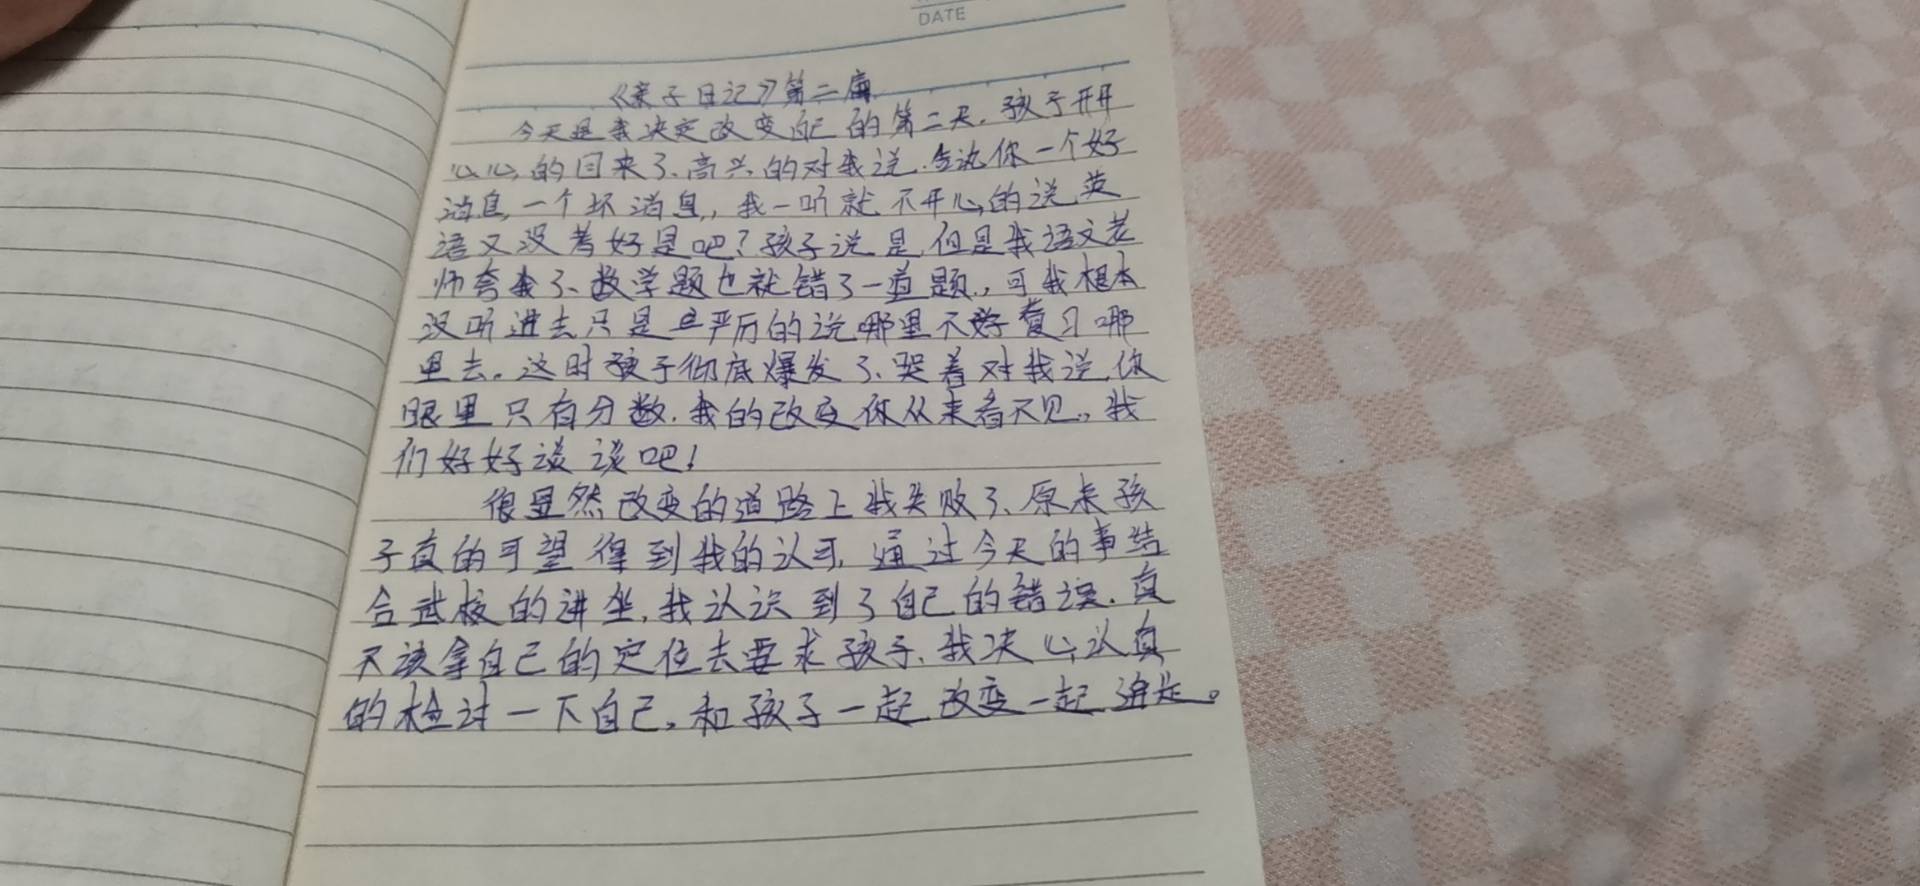 DATE
《亲子日记》第二篇
今天是我决定改变自己的第二天.孩子开开
心心的回来了、高兴的对我说.告讼你一个好
消息,一个坏消息,我一听就不开心的说英
语又没考好是吧?孩子说是,但是我语文老
师夸我了、数学题也就错了一道题,可我根本
没听进去只是严厉的说哪里不好复习哪
里去。这时孩子彻底爆发了、哭着对我说,你
眼里只有分数.我的改变你从来看不见,我
们好好谈谈吧!
很显然改变的道路上我失败了、原来孩
子真的可望得到我的认可,通过今天的事结
合武校的讲坐,我认识到了自己的错误.真
不该拿自己的定位去要求孩子、我决心认真
的检讨一下自己,和孩子一起改变一起进步。